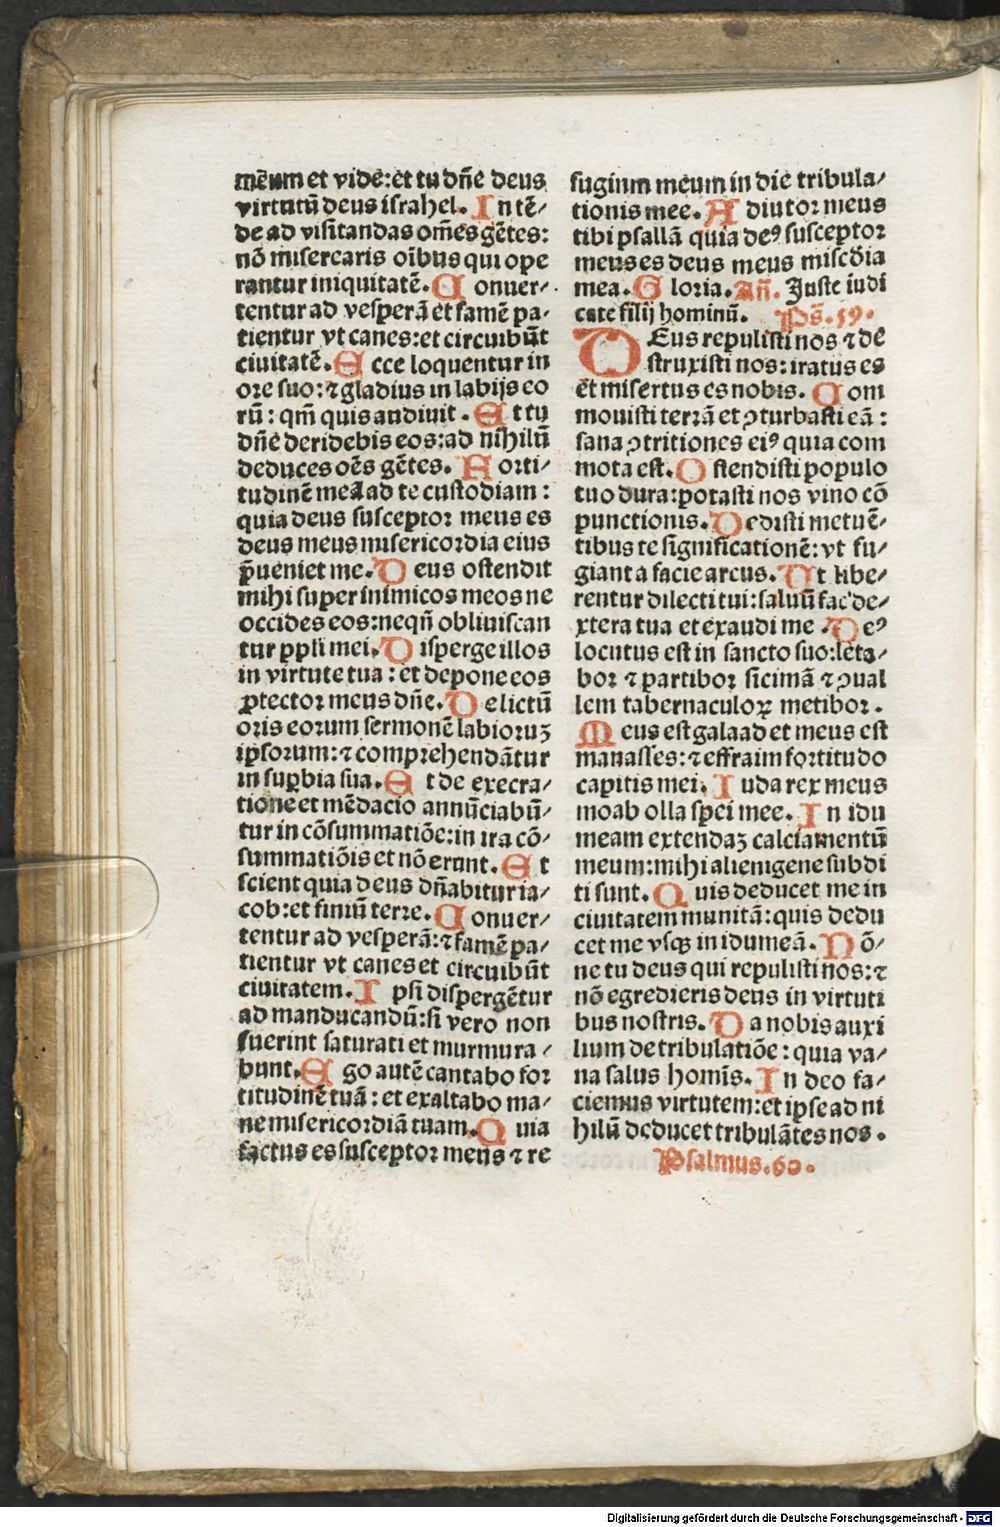 mēum et vide: et tu dñe deus
virtutū deus israhel. In tē/
de ad visitandas om̄es gētes:
nō miserearis oībus qui ope
rantur iniquitatē. Conuer/
tentur ad vesperā et famē pa/
tientur vt canes: et circuibūt
ciuitatē. Ecce loquentur in
ore suo: ⁊ gladius in labijs eo
rū: qm̄ quis audiuit. Et tu
dñe deridebis eos: ad nihilū
deduces oēs gētes. Forti/
tudinē meā ad te custodiam:
quia deus susceptor meus es
deus meus misericordia eius
p̄ueniet me. Deus ostendit
mihi super inimicos meos ne
occides eos: neqñ obliuiscan
tur ppli mei. Disperge illos
in virtute tua: et depone eos
ꝓtector meus dñe. Delictū
oris eorum sermonē labioruꝫ
ip̄sorum: ⁊ comprehendātur
in suꝑbia sua. Et de execra/
tione et mēdacio annūciabū/
tur in cōsummatiōe: in ira cō/
summatiōis et nō erunt. Et
scient quia deus dñabitur ia/
cob: et finiū terre. Conuer/
tentur ad vesperā: ⁊ famē pa/
tientur vt canes et circuibūt
ciuitatem. Ipsi dispergētur
ad manducandū: si vero non
fuerint saturati et murmura/
bunt. Ego autē cantabo for
titudinē tuā: et exaltabo ma/
ne misericordiā tuam. Quia
factus es susceptor meus ⁊ re
fugium meum in die tribula/
tionis mee. Adiutor meus
tibi psallā quia deꝰ susceptor
meus es deus meus miscd̄ia
mea. Gloria. Añ. Juste iudi
cate filij hominū. Ps̄. 59.
DEus repulisti nos ⁊ de
struxisti nos: iratus es
et misertus es nobis. Com
mouisti terrā et ꝯturbasti eā:
sana ꝯtritiones eiꝰ quia com
mota est. Ostendisti populo
tuo dura: potasti nos vino cō
punctionis. Dedisti metuē/
tibus te significationē: vt fu/
giant a facie arcus. Ut libe/
rentur dilecti tui: saluū fac de/
xtera tua et exaudi me. Deꝰ
locutus est in sancto suo: leta/
bor ⁊ partibor sicimā ⁊ ꝯual
lem tabernaculoꝝ metibor.
Meus est galaad et meus est
manasses: ⁊ effraim fortitudo
capitis mei. Iuda rex meus
moab olla spei mee. In idu
meam extendaꝫ calciamentū
meum: mihi alienigene subdi
ti sunt. Quis deducet me in
ciuitatem munitā: quis dedu
cet me vsqꝫ in idumeā. Nō/
ne tu deus qui repulisti nos: ⁊
nō egredieris deus in virtuti
bus nostris. Da nobis auxi
lium de tribulatiōe: quia va/
na salus homīs. In deo fa/
ciemus virtutem: et ipse ad ni
hilū deducet tribulātes nos.
Psalmus. 60.
Digitalisierung gefördert durch die Deutsche Forschungsgemeinschaft - DFG